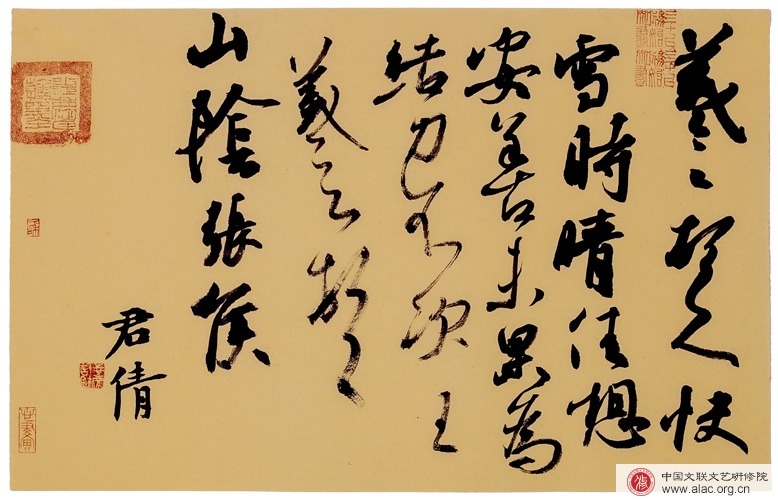 羲之頓首快
雪時晴佳想
安善未果為
結力不次王
羲之頓首
山陰張侯
君倩
中国文联文艺研修院
www.alac.org.cn